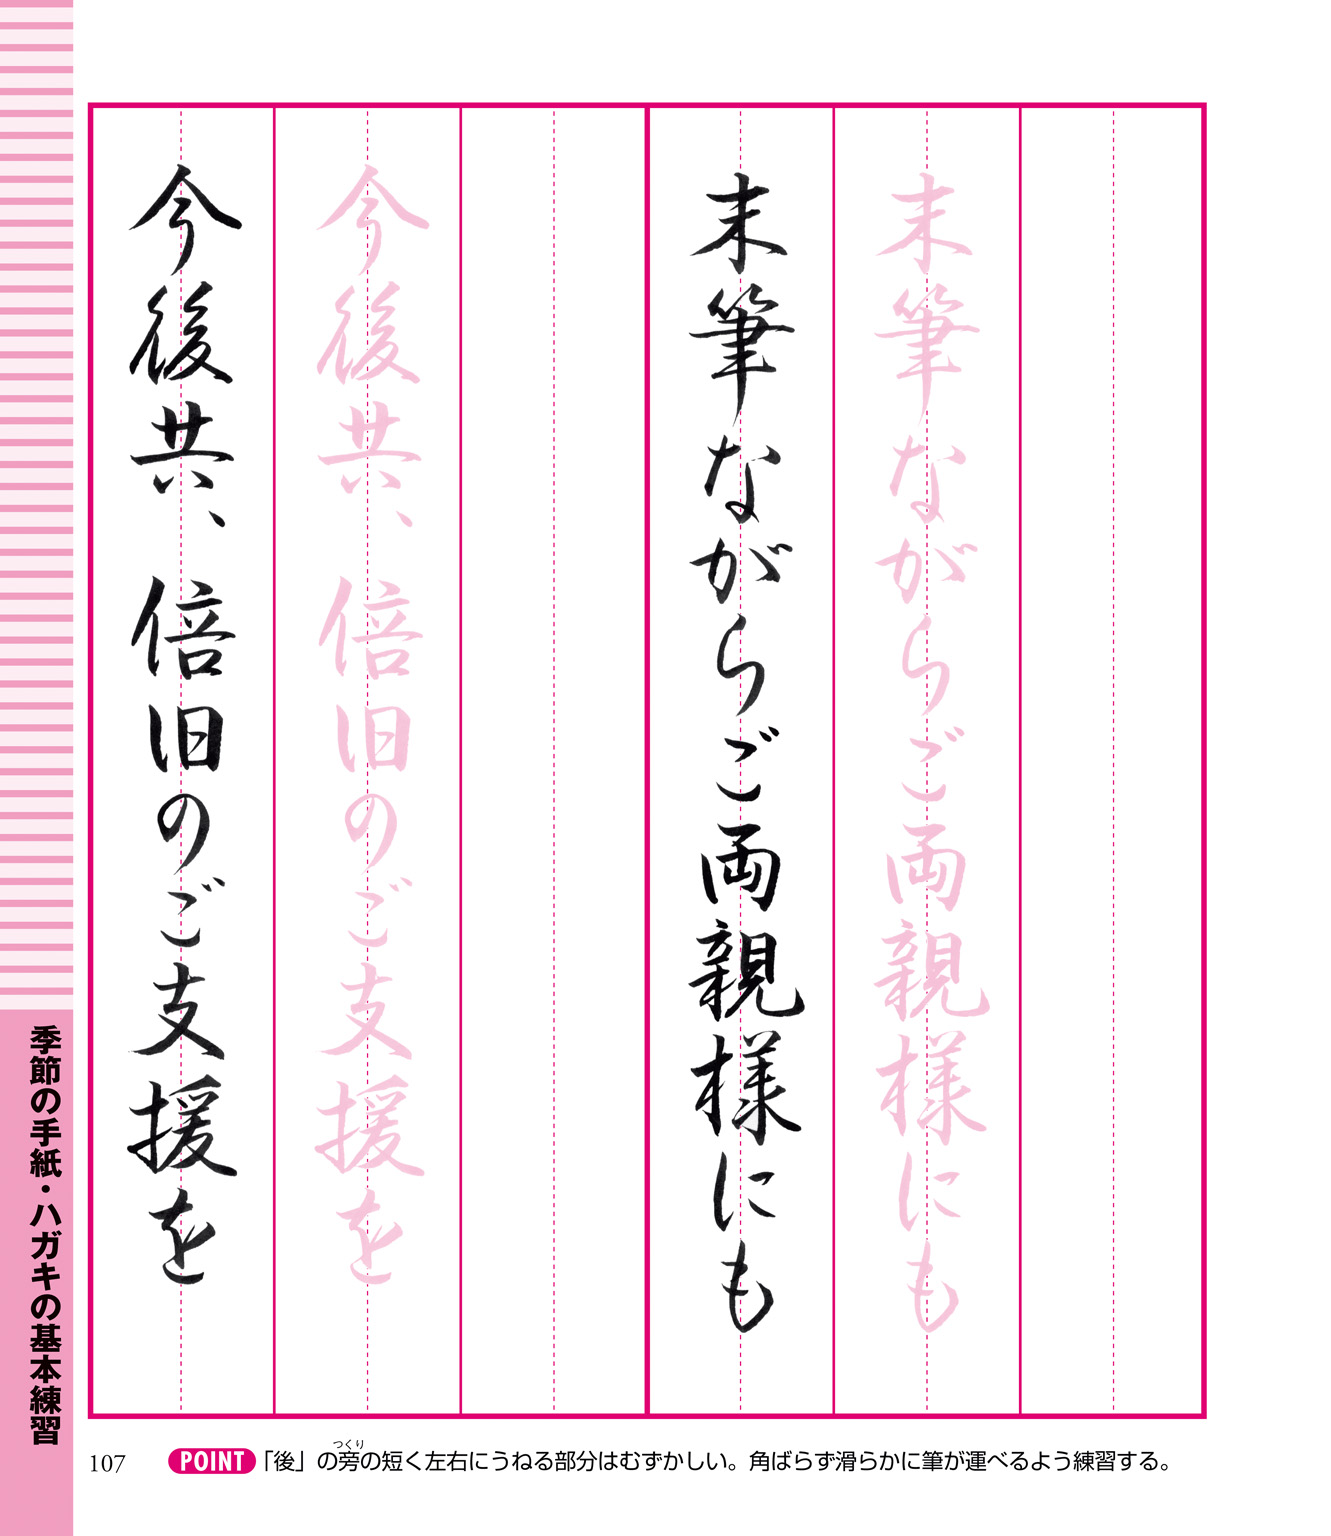 末筆ながらご両親様にも
末筆ながらご両親様にも
今後共、倍旧のご支援を
今後共、倍旧のご支援を
季節の手紙・ハガキの基本練習
107
POINT 「後」の旁の短く左右にうねる部分はむずかしい。角ばらず滑らかに筆が運べるよう練習する。
つくり